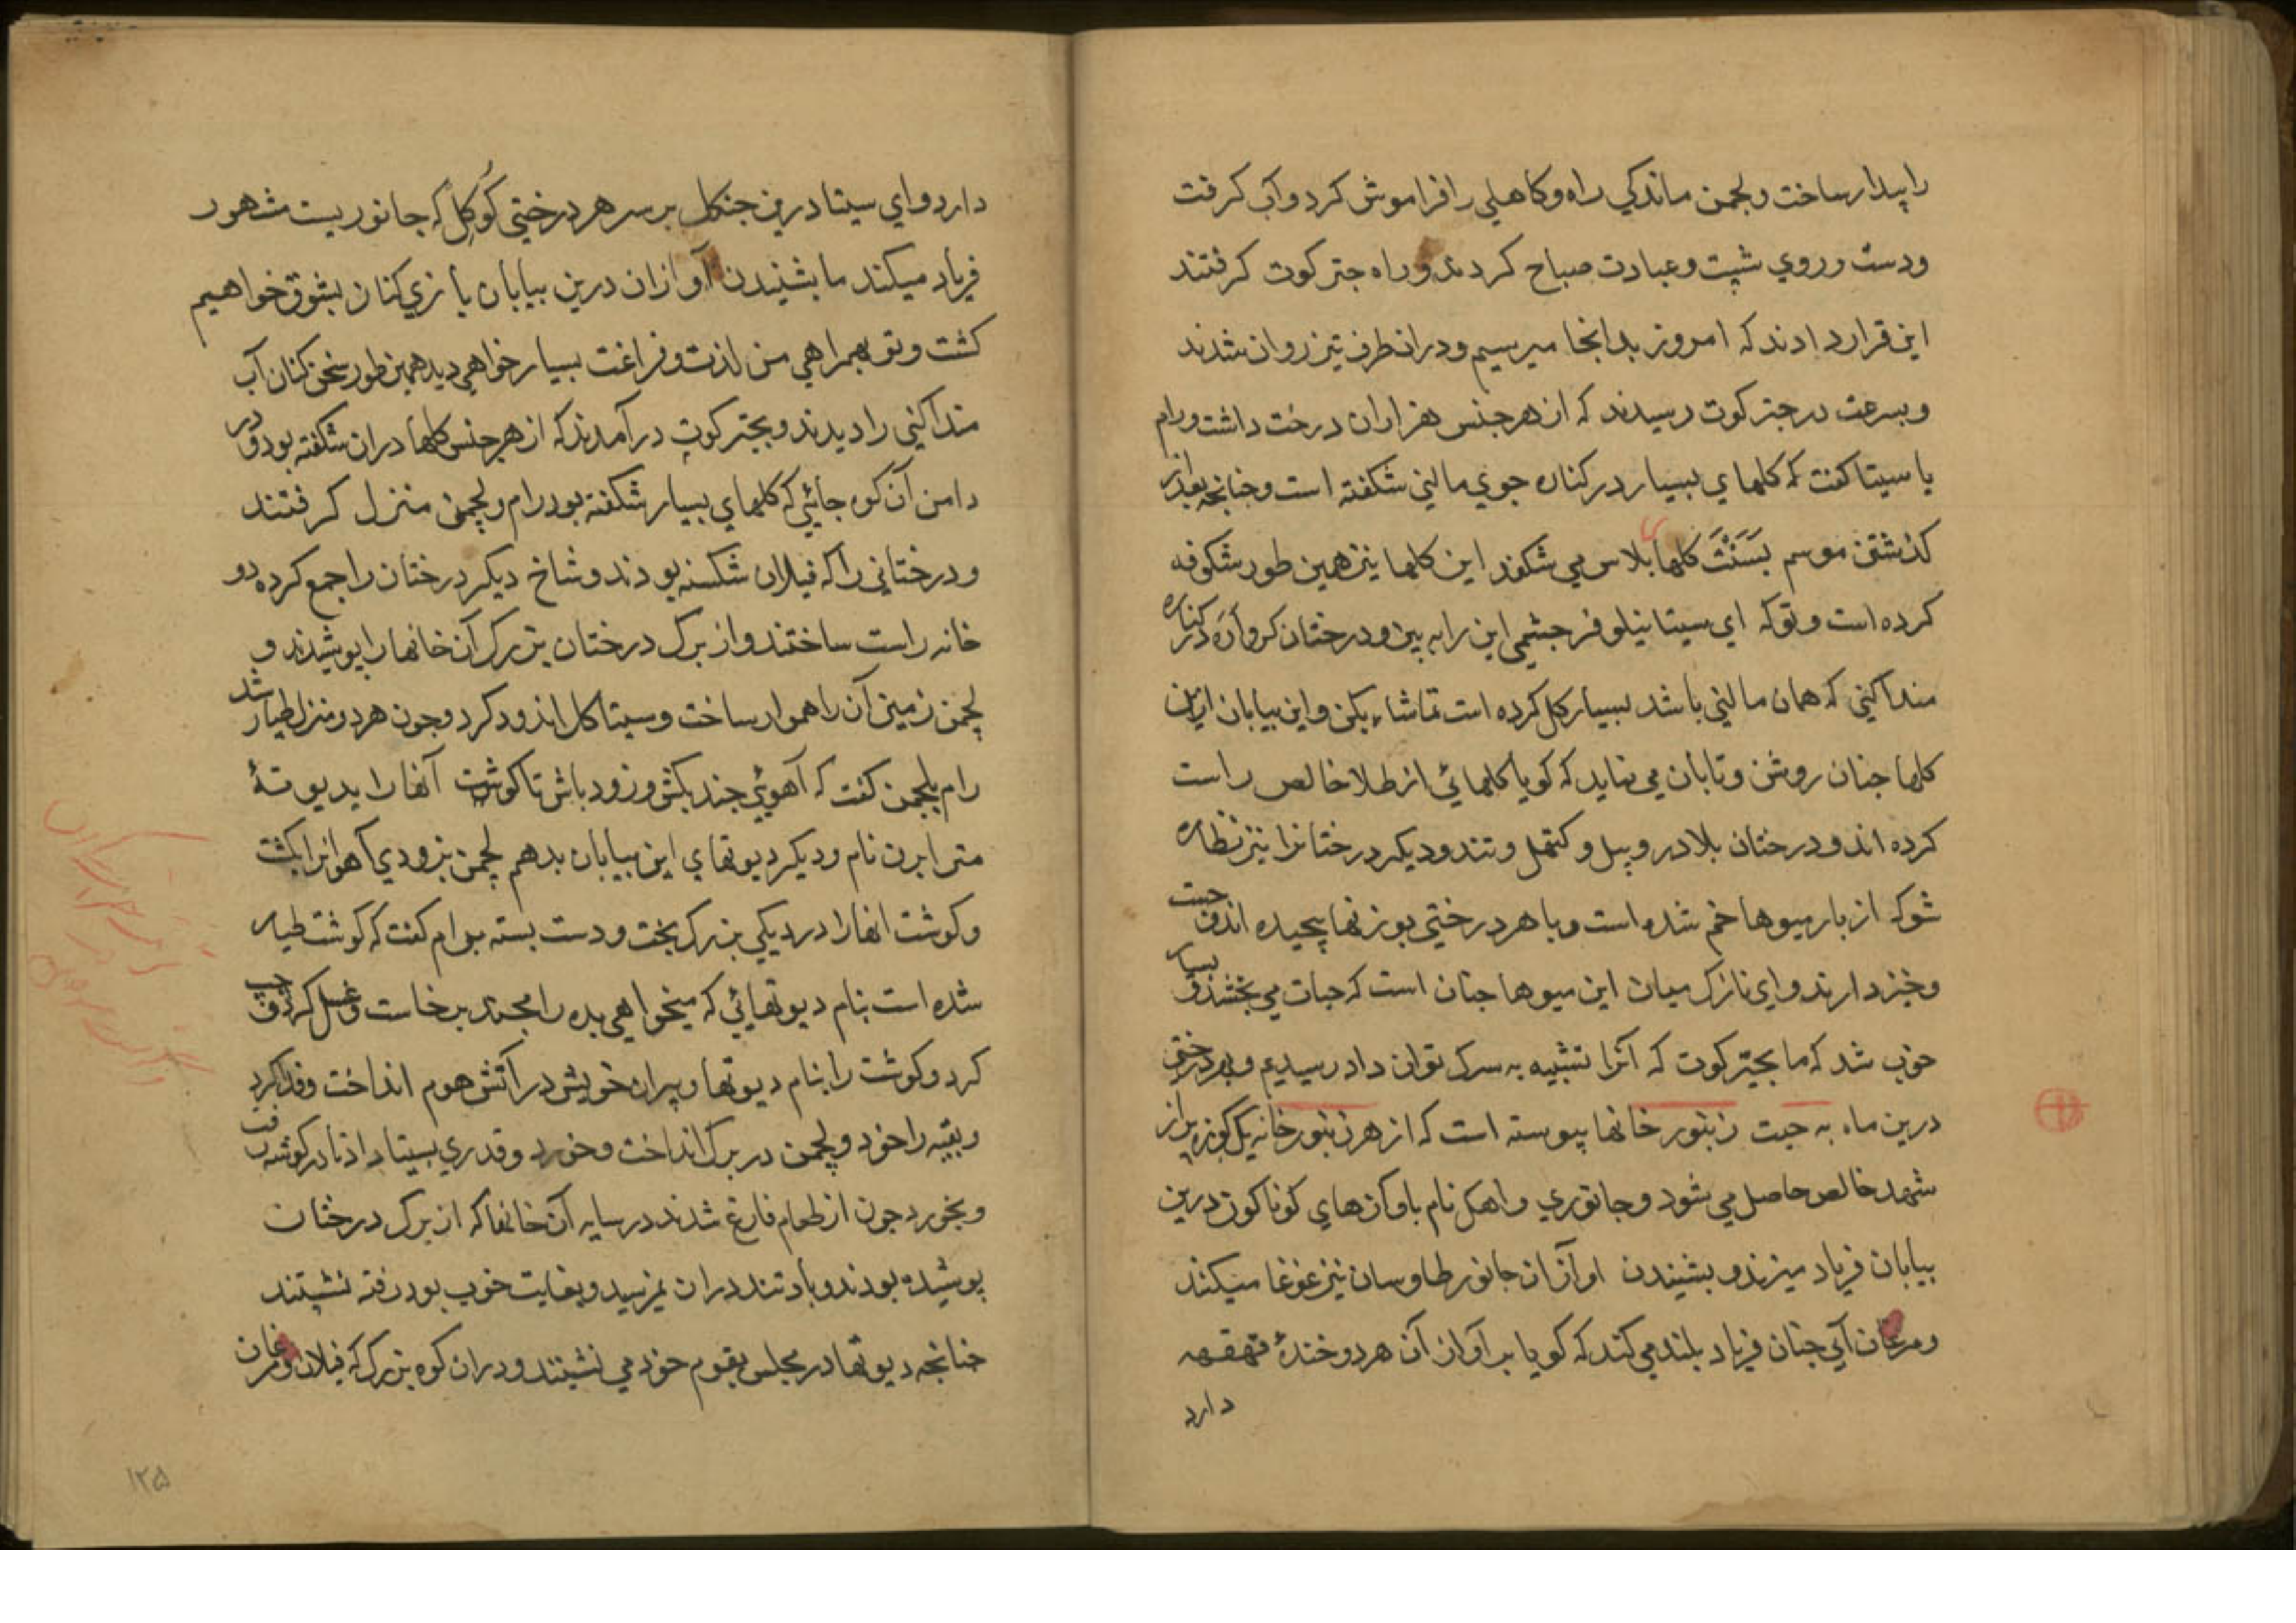 را پیدار ساخت و لجمن ماندکي راه و کاهلي را فراموش کرد و آب کرفت
و دست و روي شپت و عبادت صباح کردند و راه جتر کوت کرفتند
این قرار دادند که امروز بدانجا میرسیم و دران طرف تیز روان شدند
و بسرعت در جتر کوت رسیدند که از هر جنس هزاران درخت داشت و رام
با سیتا کفت که کلهاي بسیار در کناره جوي مالني شکفته است و جنانجه بعد از
کذشتن موسم بَسَنْتَ کلها بلاس مي شکفد این کلها نیز همین طور شکوفه
کرده است و توکه اي سیتا نیلوفر جشمي این را به بین و درختان در کناره
منداکني که همان مالني باشد بسیار کل کرده است تماشاء بکن و این بیابان ازین
کلها جنان روشن و تابان مي نماید که کویا کلهائي از طلا خالص راست
کرده اند و درختان بلادر و بیل و کتهل و تندو دیکر درختانرا نیز نظاره
شوکه از بار میوها خم شده است و با هر درختي بوزنها پیچیده اند و جست
و خیز دارند و اي نازک میان این میوها جنان است که حیات مي بخشد و بسیار
خوب شد که ما بجتر کوت که آنرا تشبیه به سرک توان داد رسیدیم و بهر درختي
درین ماه به جیت زنبور خانها پیوسته است که از هر زنبور خانه یک کوزه پر از
شهد خالص حاصل مي شود و جانوري واهکل نام باوآزهاي کوناکون درین
بیابان فریاد میزند و بشنیدن اوآز ان جانور طاوسان نیز غوغا میکنند
و مرغان آبي جنان فریاد بلند مي کند که کویا بر آواز آن هر دو خندهٔ قهقهه
دارد
دارد و اي سیتا درین جنکل بر سر هر درختي کُوکِل که جانوریست مشهور
فریاد میکند ما بشنیدن آواز ان درین بیابان بازي کنان بشوق خواهیم
کشت و تو بهمراهي من لذت و فراغت بسیار خواهي دید همین طور سخن کنان آب
منداکني را دیدند و بجتر کوت در آمدند که از هر جنس کلها دران شکفته بود و در
دامن آن کوه جائي که کلهاي بسیار شکفته بود رام و لچمن منزل کرفتند
و درختاني را که فیلان شکسته بودند و شاخ دیکر درختان را جمع کرده دو
خانه راست ساختند و از برک درختان بزرک آن خانها را پوشیدند و
لچمن زمین آن را هموار ساخت و سیتا کل اندود کرد و جون هر دو منزل طیار شد
رام بلجمن کفت که آهوئي جند بکش و زود باش تا کوشت آنها را بدیوتهٔ
متر ابرن نام و دیکر دیوتهاي این بیابان بدهم لچمن بزودي آهوانرا بکشت
و کوشت انها را در دیکي بزرک بخت و دست بسته برام کفت که کوشت طیار
شده است بنام دیوتهائي که میخواهي بده رامجند برخاست و غسل کرد و
کرد و کوشت را بنام دیوتها و پیران خویش در آتش هوم انداخت و فدا کرد
و بقیه را خود و لچمن در برک انداخت و خورد و قدري بسیتا داد تا در کوشه رفت
و بخورد جون از طعام فارغ شدند در سایه آن خانها که از برک درختان
پوشیده بودند و باد تند دران نمیرسید و بغایت خوب بود رفته نشستند
جنانجه دیوتها در مجلس بقوم خود مي نشینند و دران کوه بزرک که فیلان و مرغان
۱۲۵